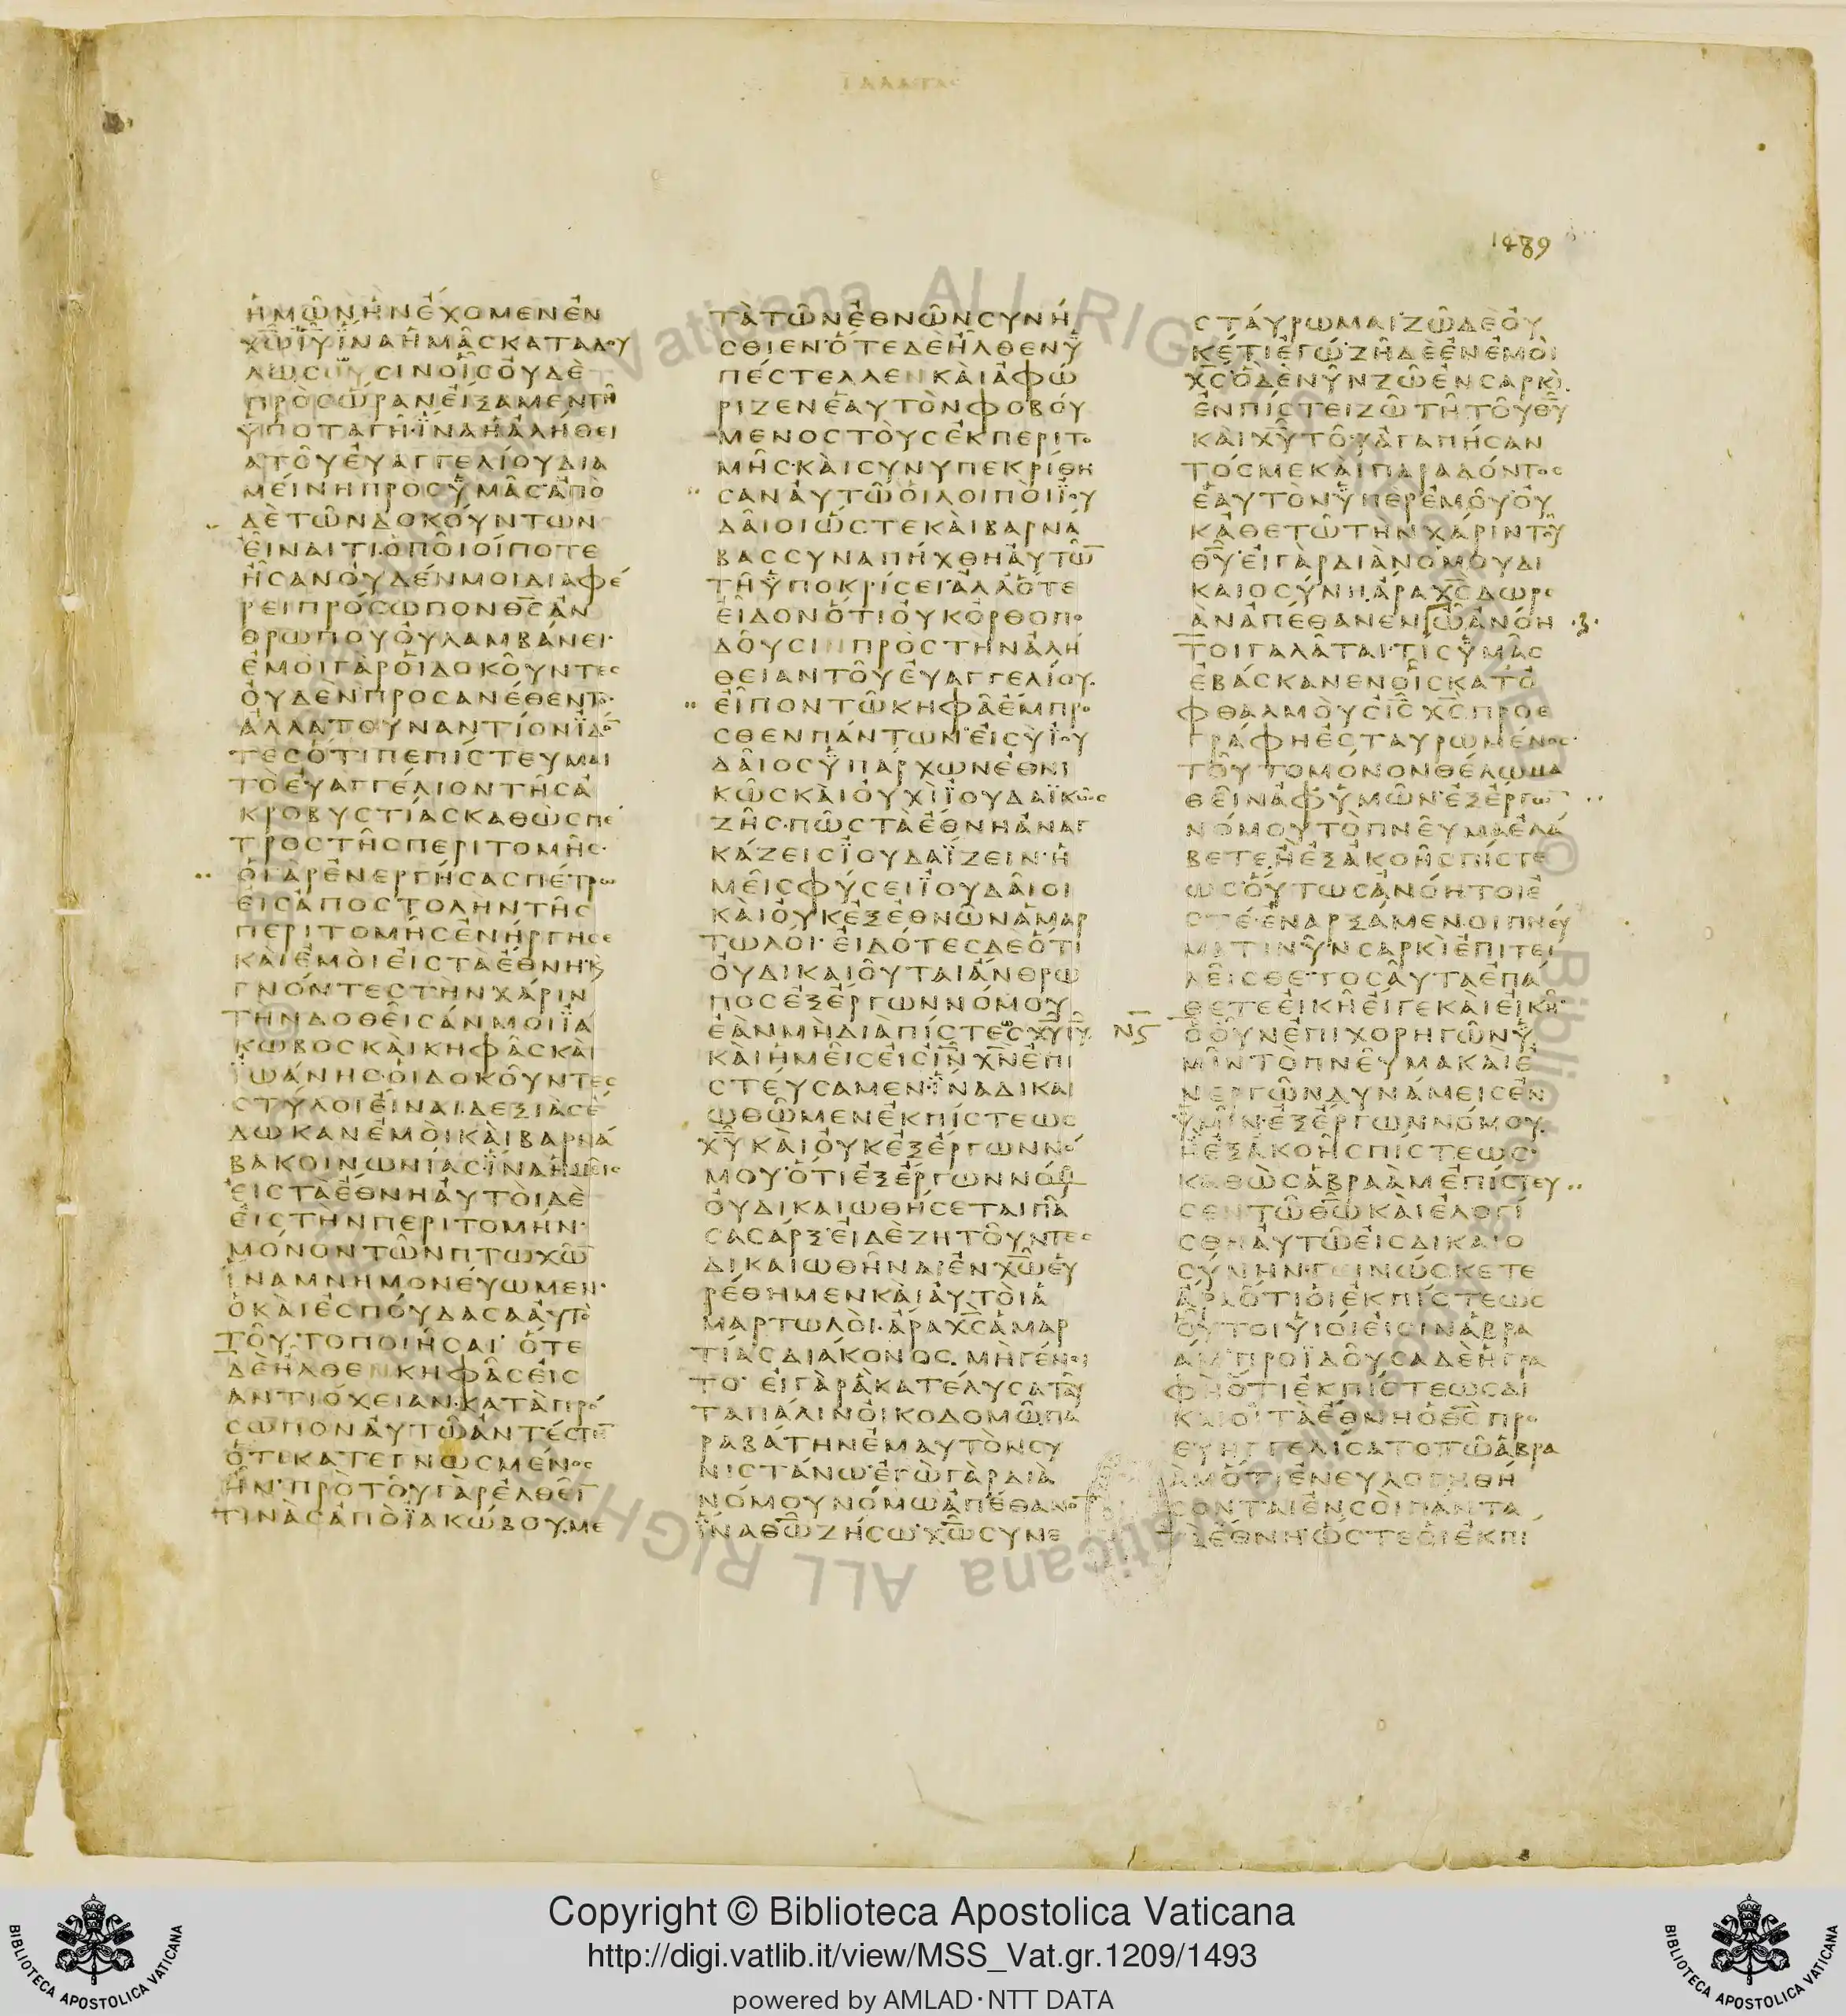 ΓΑΛΑΤΑΣ
1489
ἡμῶν ἣν ἔχομεν ἐν
χ̅ω̅ ι̅υ̅ ἵνα ἡμᾶς καταδου
λώσουσιν οἷς οὐδὲ
πρὸς ὥραν εἴξαμεν τῇ
ὑποταγῇ· ἵνα ἡ ἀλήθει
α τοῦ εὐαγγελίου δια
μείνῃ πρὸς ὑμᾶς· ἀπὸ
δὲ τῶν δοκούντων
εἶναί τι· ὁποῖοί ποτε
ἦσαν οὐδέν μοι διαφέ
ρει πρόσωπον θ̅ς̅ ἀν
θρώπου οὐ λαμβάνει·
ἐμοὶ γὰρ οἱ δοκοῦντες
οὐδὲν προσανέθεντο·
ἀλλὰ τοὐναντίον ἰδό
τες ὅτι πεπίστευμαι
τὸ εὐαγγέλιον τῆς ἀ
κροβυστίας καθὼς πέ
τρος τῆς περιτομῆς·
ὁ γὰρ ἐνεργήσας πέτρω
εἰς ἀποστολὴν τῆς
περιτομῆς ἐνήργησε
καὶ ἐμοὶ εἰς τὰ ἔθνη· κ̀
γνόντες τὴν χάριν
τὴν δοθεῖσάν μοι ἰά
κωβος καὶ κηφᾶς καὶ
ἰωάνης· οἱ δοκοῦντες
στύλοι εἶναι· δεξιὰς ἔ
δωκαν ἐμοὶ καὶ βαρνά
βα κοινωνίας· ἵνα ἡμεῖς
εἰς τὰ ἔθνη αὐτοὶ δὲ
εἰς τὴν περιτομήν·
μόνον τῶν πτωχῶ̅
ἵνα μνημονεύωμεν·
ὃ καὶ ἐσπούδασα αὐτὸ
τοῦτο ποιῆσαι· ὅτε
δὲ ἦλθεν κηφᾶς εἰς
ἀντιόχειαν· κατὰ πρό
σωπον αὐτῶ ἀντέστη̅
ὅτι κατεγνωσμένος
ἦν· πρὸ τοῦ γὰρ ἐλθεῖ̅
τινὰς ἀπὸ ἰακώβου· με
τὰ τῶν ἐθνῶν συνή
σθιεν· ὅτε δὲ ἦλθεν ὑ
πέστελλεν καὶ ἀφώ
ριζεν ἑαυτὸν φοβού
μενος τοὺς ἐκ περιτο
μῆς· καὶ συνυπεκρίθη
σαν αὐτῶ οἱ λοιποὶ ἰου
δαῖοι ὥστε καὶ βαρνά
βας συναπήχθη αὐτῶ̅
τῇ ὑποκρίσει· ἀλλ ὅτε
εἶδον ὅτι οὐκ ὀρθοπο
δοῦσιν πρὸς τὴν ἀλή
θειαν τοῦ εὐαγγελίου·
εἶπον τῶ κηφᾷ ἔμπρο
σθεν πάντων· εἰ σὺ ἰου
δαῖος ὑπάρχων ἐθνι
κῶς καὶ οὐχὶ ἰουδαϊκῶς
ζῇς· πῶς τὰ ἔθνη ἀναγ
κάζεις ἰουδαΐζειν· ἡ
μεῖς φύσει ἰουδαῖοι
καὶ οὐκ ἐξ ἐθνῶν ἁμαρ
τωλοί· εἰδότες δὲ ὅτι
οὐ δικαιοῦται ἄνθρω
πος ἐξ ἔργων νόμου
ἐὰν μὴ διὰ πίστεως χ̅υ̅ ι̅υ̅
καὶ ἡμεῖς εἰς ι̅ν̅ χ̅ν̅ ἐπι
στεύσαμεν· ἵνα δικαι
ωθῶμεν ἐκ πίστεως
χ̅υ̅ καὶ οὐκ ἐξ ἔργων νό
μου· ὅτι ἐξ ἔργων νόμου
οὐ δικαιωθήσεται πᾶ
σα σάρξ· εἰ δὲ ζητοῦντες
δικαιωθῆναι ἐν χ̅ω̅ εὑ
ρέθημεν καὶ αὐτοὶ ἁ
μαρτωλοί· ἆρα χ̅ς̅ ἁμαρ
τίας διάκονος· μὴ γένοι
το· εἰ γὰρ ἃ κατέλυσα ταῦ
τα πάλιν οἰκοδομῶ πα
ραβάτην ἐμαυτὸν συ
νιστάνω· ἐγὼ γὰρ διὰ
νόμου νόμω ἀπέθανο̅
ἵνα θ̅ω̅ ζήσω· χ̅ω̅ συνε
ΝϚ
σταύρωμαι· ζῶ δὲ οὐ
κέτι ἐγώ· ζῇ δὲ ἐν ἐμοὶ
χ̅ς̅· ὃ δὲ νῦν ζῶ ἐν σαρκὶ·
ἐν πίστει ζῶ τῇ τοῦ θ̅υ̅
καὶ χ̅υ̅ τοῦ ἀγαπήσαν
τός με καὶ παραδόντος
ἑαυτὸν ὑπὲρ ἐμοῦ· οὐ
κ ἀθετῶ τὴν χάριν τοῦ
θ̅υ̅· εἰ γὰρ διὰ νόμου δι
καιοσύνη· ἄρα χ̅ς̅ δωρε
ὰν ἀπέθανεν ὦ ἀνόη
τοι γαλᾶται· τίς ὑμᾶς
ἐβάσκανεν οἷς κατ ὀ
φθαλμοὺς ι̅ς̅ χ̅ς̅ προε
γράφη ἐσταυρωμένος·
τοῦτο μόνον θέλω μα
θεῖν ἀφ ὑμῶν· ἐξ ἔργων
νόμου τὸ πνεῦμα ἐλά
βετε· ἢ ἐξ ἀκοῆς πίστε
ως· οὕτως ἀνόητοί ἐ
στέ· ἐναρξάμενοι πνεύ
ματι νῦν σαρκὶ ἐπιτε
λεῖσθε· τοσαῦτα ἐπά
θετε εἰκῇ εἴ γε καὶ εἰκῇ·
ὁ οὖν ἐπιχορηγῶν ὑ
μῖν τὸ πνεῦμα καὶ ἐ
νεργῶν δυνάμεις ἐν
ὑμῖν· ἐξ ἔργων νόμου·
ἢ ἐξ ἀκοῆς πίστεως·
καθὼς ἀβραὰμ ἐπίστευ
σεν τῶ θ̅ω̅ καὶ ἐλογί
σθη αὐτῶ εἰς δικαιο
σύνην· γινώσκετε
ἄρα ὅτι οἱ ἐκ πίστεως
οὗτοι υἱοί εἰσιν ἀβρα
άμ· προϊδοῦσα δὲ ἡ γρα
φὴ ὅτι ἐκ πίστεως δι
καιοῖ τὰ ἔθνη ὁ θ̅ς̅ προ
ευηγγελίσατο τῶ ἀβρα
ὰμ ὅτι ἐνευλογηθή
σονται ἐν σοὶ πάντα
τὰ ἔθνη· ὥστε οἱ ἐκ πί
Copyright © Biblioteca Apostolica Vaticana
http://digi.vatlib.it/view/MSS_Vat.gr.1209/1493
powered by AMLAD·NTT DATA
BIBLIOTECA APOSTOLICA VATICANA
BIBLIOTECA APOSTOLICA VATICANA